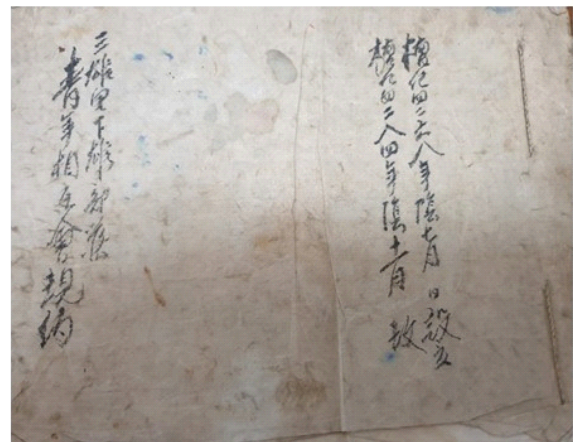 檀紀四二六八年陰七月 日 設立
檀紀四二八四年陰十一月
三雄里下雄部落
青年相互會規約